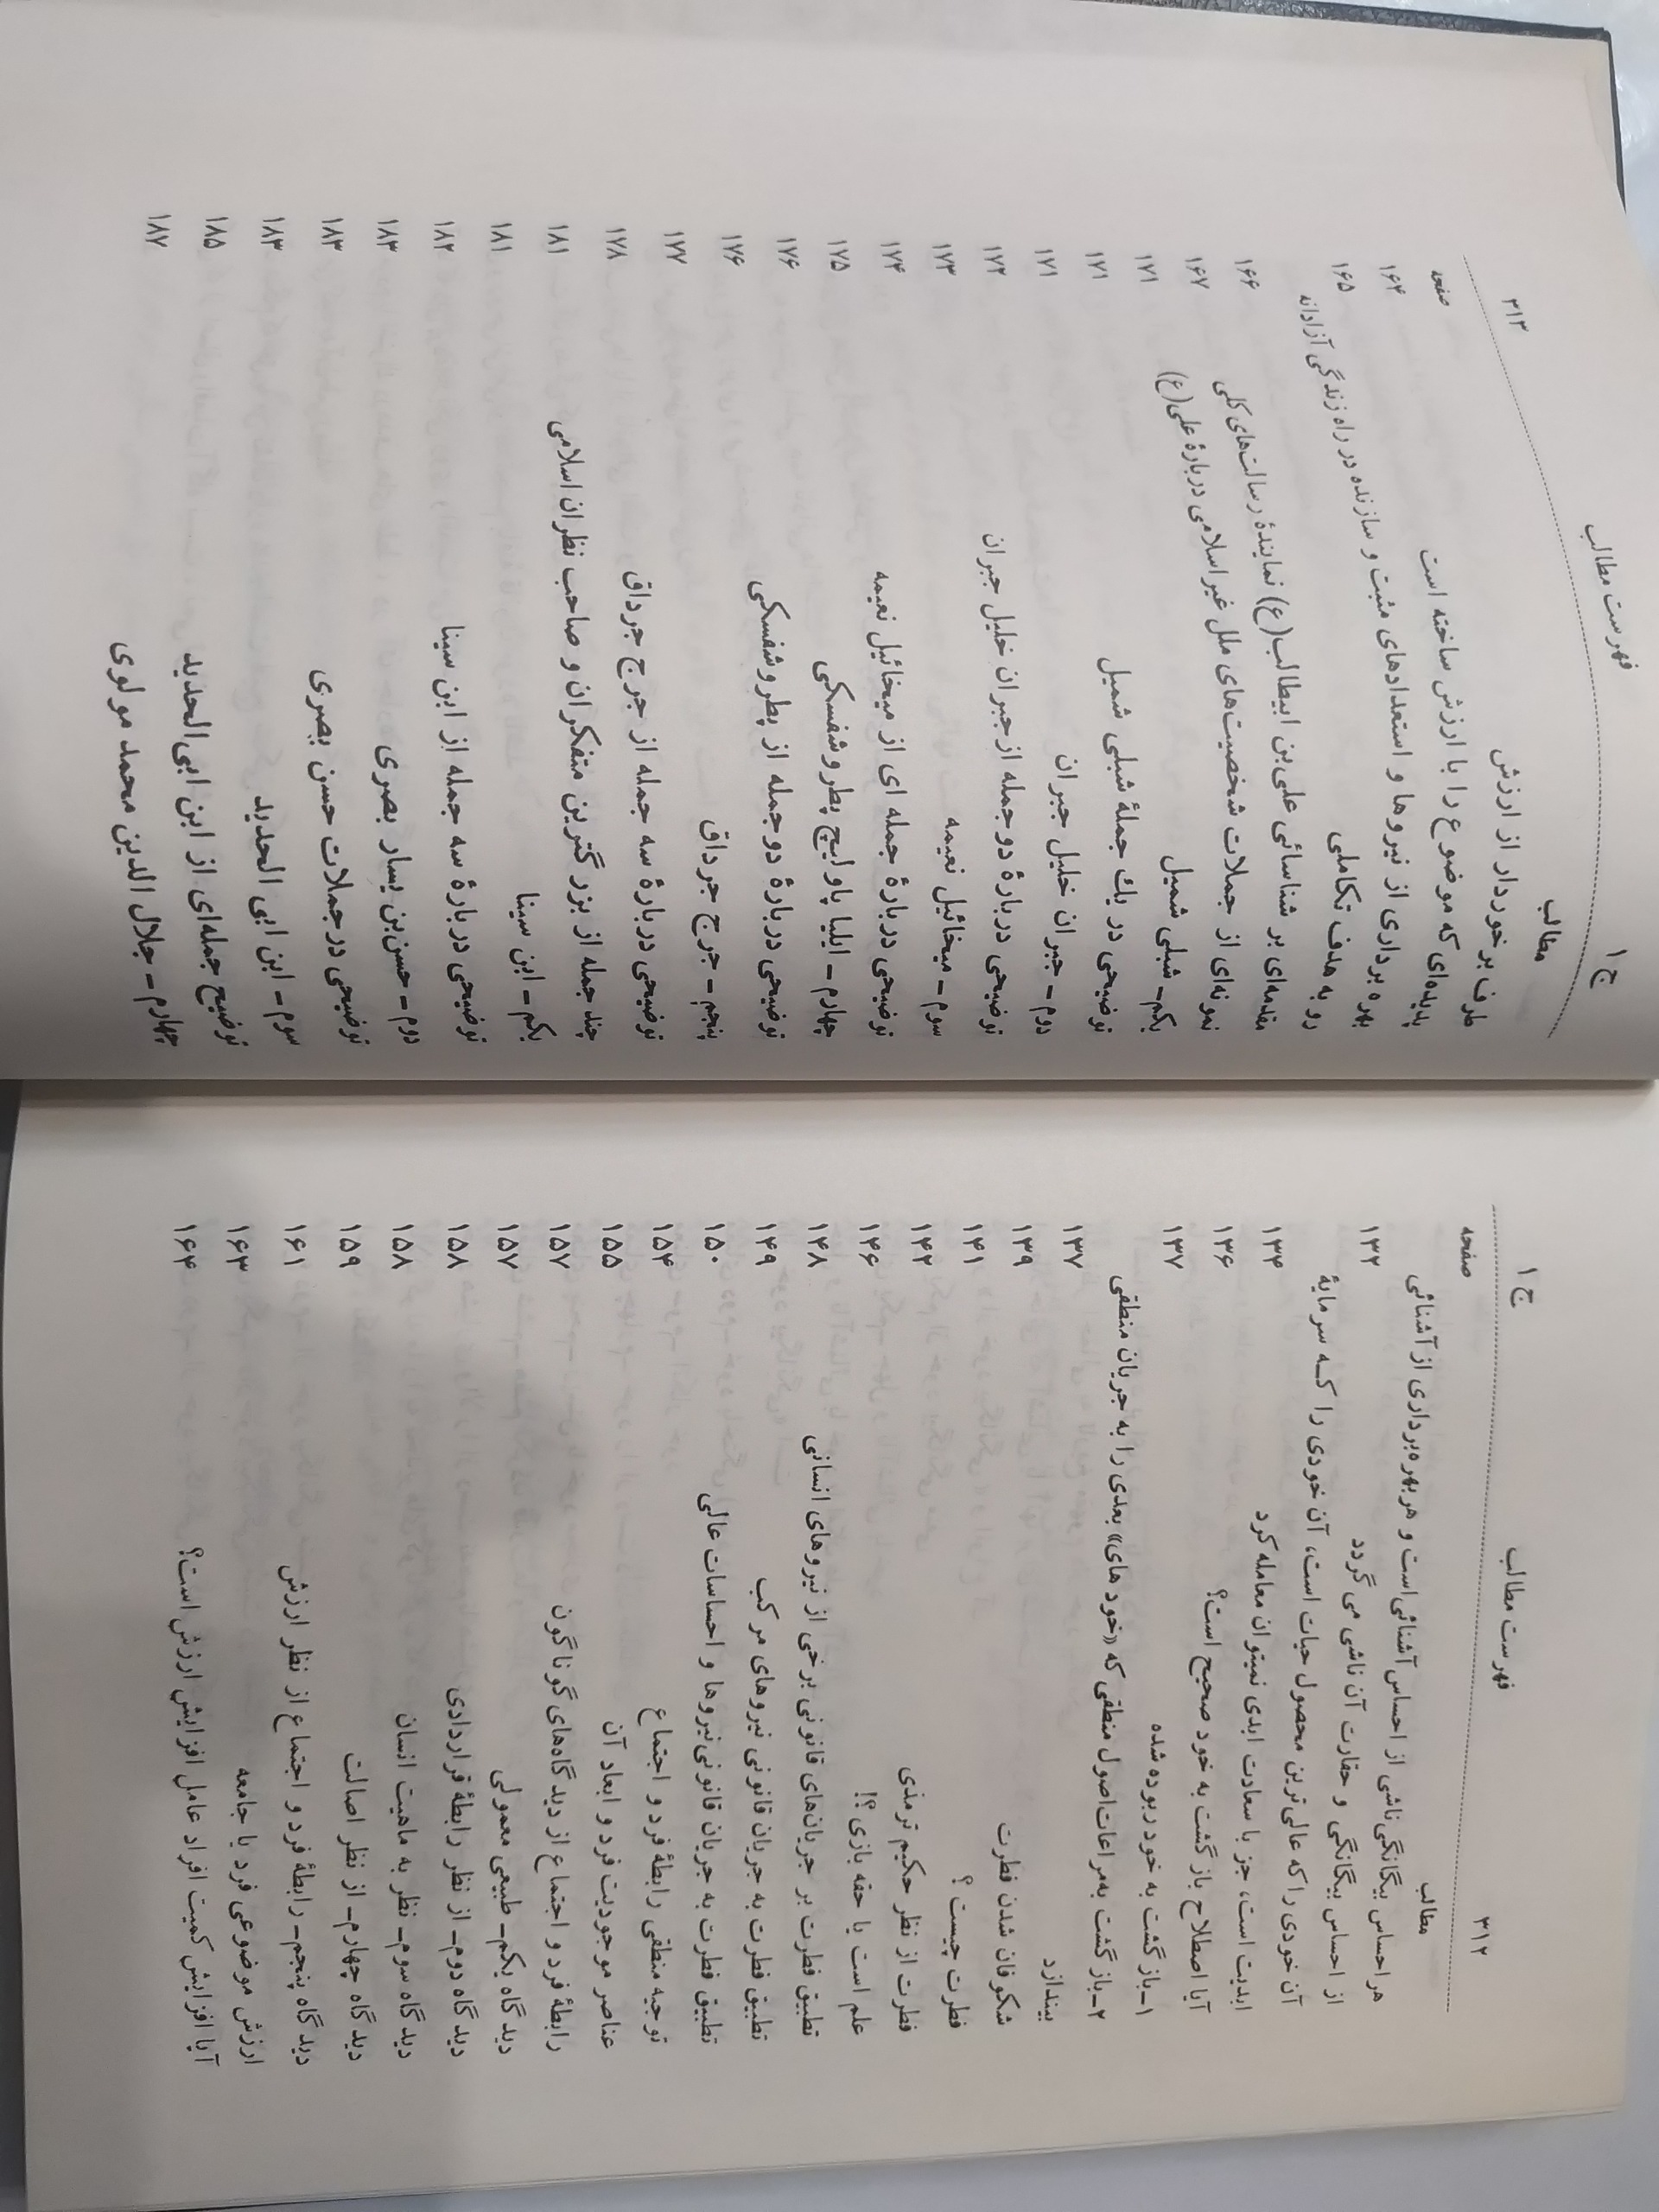 ۳۱۲ فهرست مطالب ج ۱
مطالب صفحه
هر احساس بیگانگی ناشی از احساس آشنائی است و هر بهره‌برداری از آشنائی
از احساس بیگانگی و حقارت آن ناشی می گردد ۱۳۲
آن خودی را که عالی ترین محصول حیات است، آن خودی را کــه سرمایهٔ
ابدیت است، جز با سعادت ابدی نمیتوان معامله کرد ۱۳۴
آیا اصطلاح بازگشت به خود صحیح است؟ ۱۳۶
۱ــ بازگشت به خود ربوده شده ۱۳۷
۲ــ بازگشت به مراعات اصول منطقی که «خودهای» بعدی را به جریان منطقی
بیندازد ۱۳۷
شکوفان شدن فطرت ۱۳۹
فطرت چیست ؟ ۱۴۱
فطرت از نظر حکیم ترمذی ۱۴۲
علم است یا حقه بازی ؟! ۱۴۶
تطبیق فطرت بر جریان‌های قانونی برخی از نیروهای انسانی ۱۴۸
تطبیق فطرت به جریان قانونی نیروهای مرکب ۱۴۹
تطبیق فطرت به جریان قانونی نیروها و احساسات عالی ۱۵۰
توجیه منطقی رابطهٔ فرد و اجتماع ۱۵۴
عناصر موجودیت فرد و ابعاد آن ۱۵۵
رابطهٔ فرد و اجتماع از دیدگاه‌های گوناگون ۱۵۷
دیدگاه یکم ــ طبیعی معمولی ۱۵۷
دیدگاه دوم ــ از نظر رابطهٔ قراردادی ۱۵۸
دیدگاه سوم ــ نظر به ماهیت انسان ۱۵۸
دیدگاه چهارم ــ از نظر اصالت ۱۵۹
دیدگاه پنجم ــ رابطهٔ فرد و اجتماع از نظر ارزش ۱۶۱
ارزش موضوعی فرد با جامعه ۱۶۳
آیا افزایش کمیت افراد عامل افزایش ارزش است؟ ۱۶۴
ج ۱ فهرست مطالب ۳۱۳
مطالب صفحه
ظرف برخوردار از ارزش ۱۶۴
پدیده‌ای که موضوع را با ارزش ساخته است ۱۶۵
بهره برداری از نیروها و استعدادهای مثبت و سازنده در راه زندگی آزادانه
رو به هدف تکاملی ۱۶۶
مقدمه‌ای بر شناسائی علی‌بن ابیطالب(ع) نمایندهٔ رسالت‌های کلی ۱۶۷
نمونه‌ای از جملات شخصیت‌های ملل غیر اسلامی دربارهٔ علی(ع) ۱۷۱
یکم ــ شبلی شمیل ۱۷۱
توضیحی در یك جملهٔ شبلی شمیل ۱۷۱
دوم ــ جبران خلیل جبران ۱۷۲
توضیحی دربارهٔ دو جمله از جبران خلیل جبران ۱۷۳
سوم ــ میخائیل نعیمه ۱۷۴
توضیحی دربارهٔ جمله ای از میخائیل نعیمه ۱۷۵
چهارم ــ ایلیا پاولیچ پطروشفسکی ۱۷۶
توضیحی دربارهٔ دو جمله از پطروشفسکی ۱۷۶
پنجم ــ جرج جرداق ۱۷۷
توضیحی دربارهٔ سه جمله از جرج جرداق ۱۷۸
چند جمله از بزرگترین متفکران و صاحب نظران اسلامی ۱۸۱
یکم ــ ابن سینا ۱۸۱
توضیحی دربارهٔ سه جمله از ابن سینا ۱۸۲
دوم ــ حسن‌بن یسار بصری ۱۸۳
توضیحی در جملات حسن بصری ۱۸۳
سوم ــ ابن ابی الحدید ۱۸۳
توضیح جمله‌ای از ابن ابی‌الحدید ۱۸۵
چهارم ــ جلال الدین محمد مولوی ۱۸۷